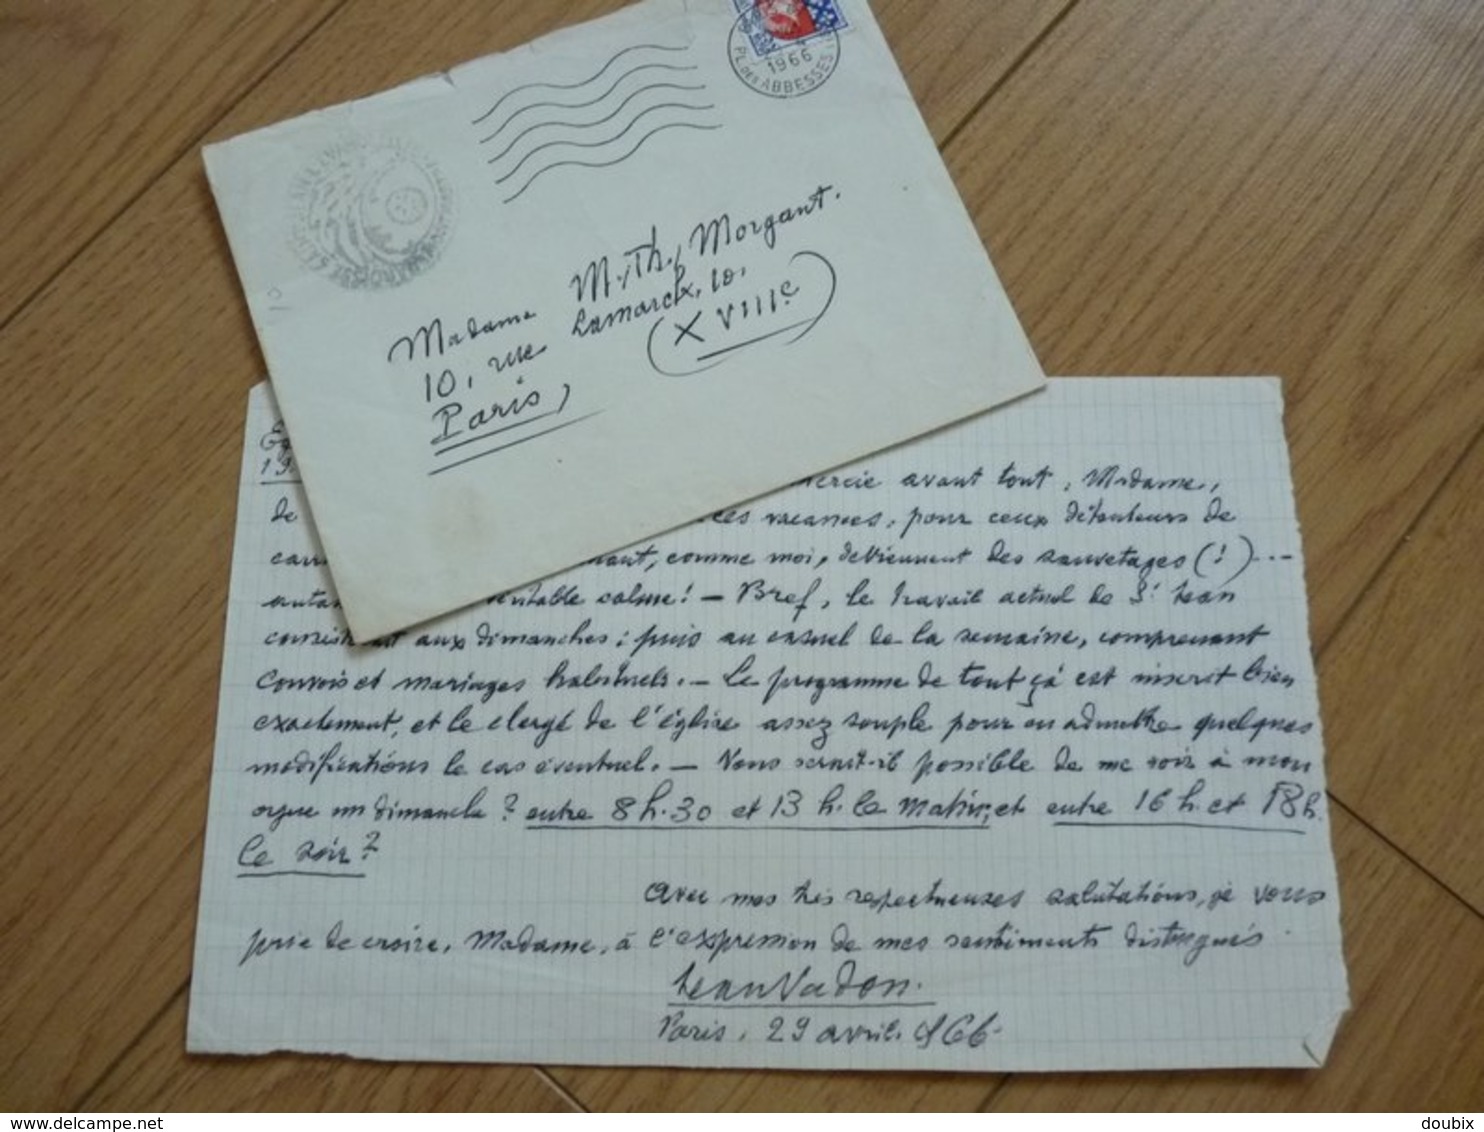 1966
PL. DES ABBESSES
Madame M. Th. Morgant.
10, rue Lamarck, 10.
Paris, (XVIIIe)
19.
avant tout, Madame,
de vacances, pour ceux détenteurs de
comme moi, deviennent des sauvetages (!) ...
calme! — Bref, le travail actuel de St Jean
aux dimanches; puis au casuel de la semaine, comprenant
convois et mariages habituels. — Le programme de tout çà est inscrit bien
exactement, et le clergé de l'église assez souple pour en admettre quelques
modifications le cas éventuel. — Vous serait-il possible de me voir à mon
orgue un dimanche? entre 8 h. 30 et 13 h. le matin; et entre 16 h. et 18 h.
le soir?
Avec mes très respectueuses salutations, je vous
prie de croire, Madame, à l'expression de mes sentiments distingués.
Jean Vadon.
Paris, 29 avril 1966.
delcampe.net
doubix